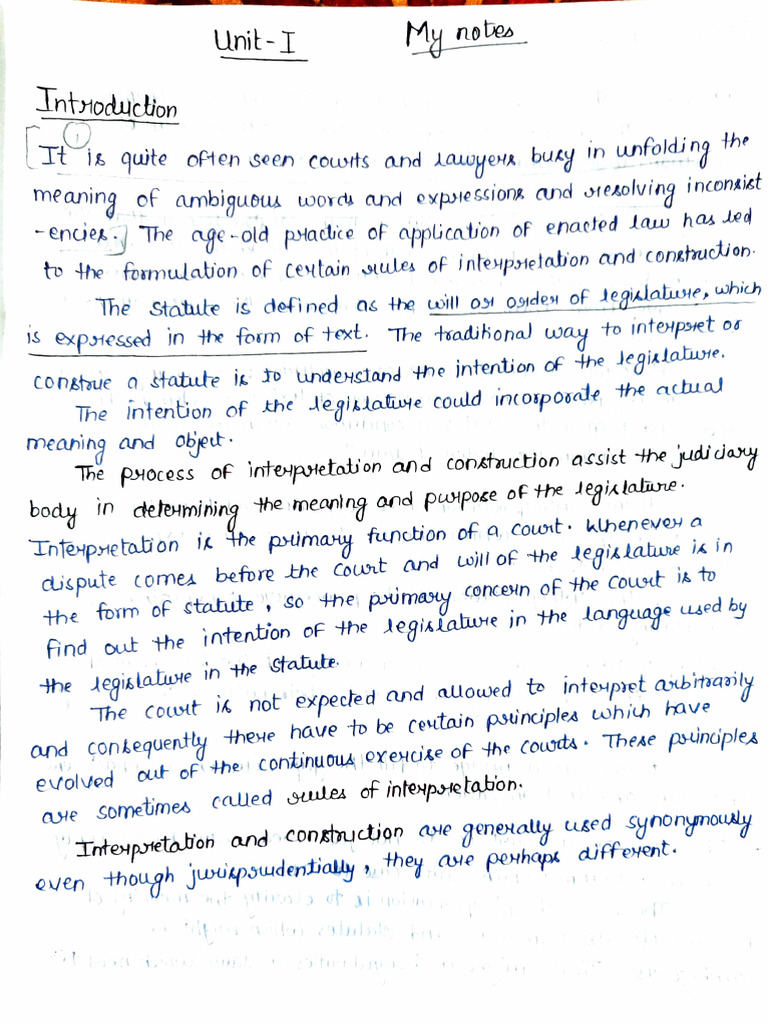 Unit-I My notes
Introduction
1
It is quite often seen courts and lawyers busy in unfolding the
meaning of ambiguous words and expressions and resolving inconsist
-encies. The age-old practice of application of enacted law has led
to the formulation of certain rules of interpretation and construction.
The statute is defined as the will or order of legislature, which
is expressed in the form of text. The traditional way to interpret or
construe a statute is to understand the intention of the legislature.
The intention of the legislature could incorporate the actual
meaning and object.
The process of interpretation and construction assist the judiciary
body in determining the meaning and purpose of the legislature.
Interpretation is the primary function of a court. Whenever a
dispute comes before the court and will of the legislature is in
the form of statute, so the primary concern of the court is to
find out the intention of the legislature in the language used by
the legislature in the statute.
The court is not expected and allowed to interpret arbitrarily
and consequently there have to be certain principles which have
evolved out of the continuous exercise of the courts. These principles
are sometimes called rules of interpretation.
Interpretation and construction are generally used synonymously
even though jurisprudentially, they are perhaps different.